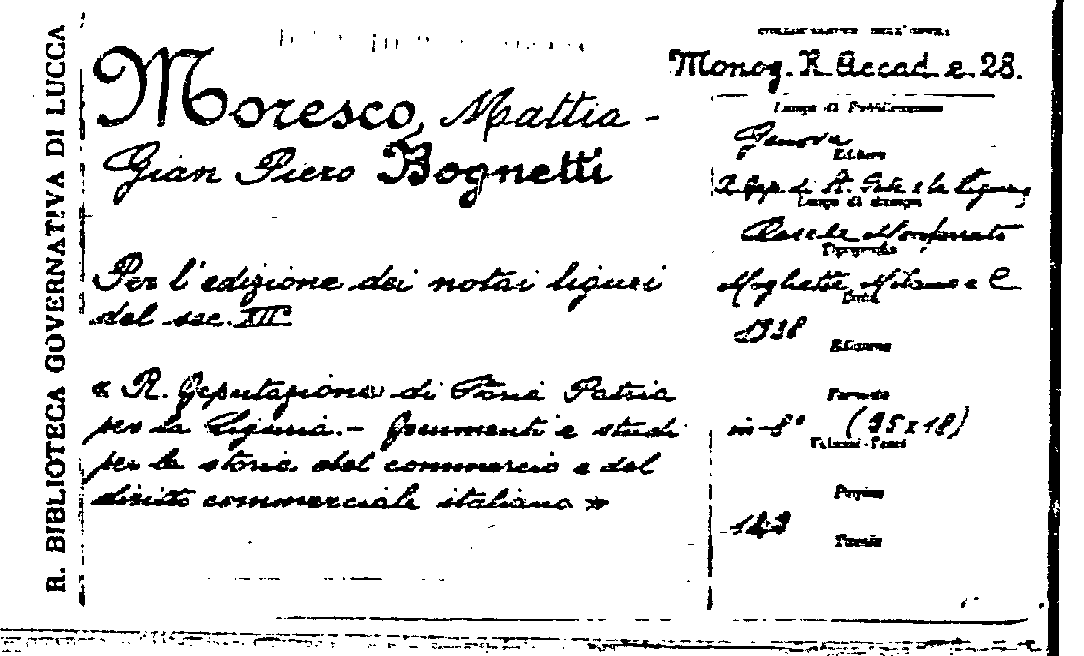 R. BIBLIOTECA GOVERNATIVA DI LUCCA
Moresco, Mattia -
Gian Piero Bognetti
Per l'edizione dei notai liguri
del sec. XII°
« R. Deputazione di Storia Patria
per la Liguria. - Documenti e studi
per la storia del commercio e del
diritto commerciale italiano »
COLLOCAZIONE DELL'OPERA
Monog. R. Accad e. 28.
Luogo di Pubblicazione
Genova
Editore
R. Dep. di St. Pat. e la Liguria
Luogo di stampa
Casale Monferrato
Tipografia
Miglietta, Milano e C
Data
1938
Edizione
Formato
in-8° (25x18)
Volumi-Tomi
Pagine
Tavole